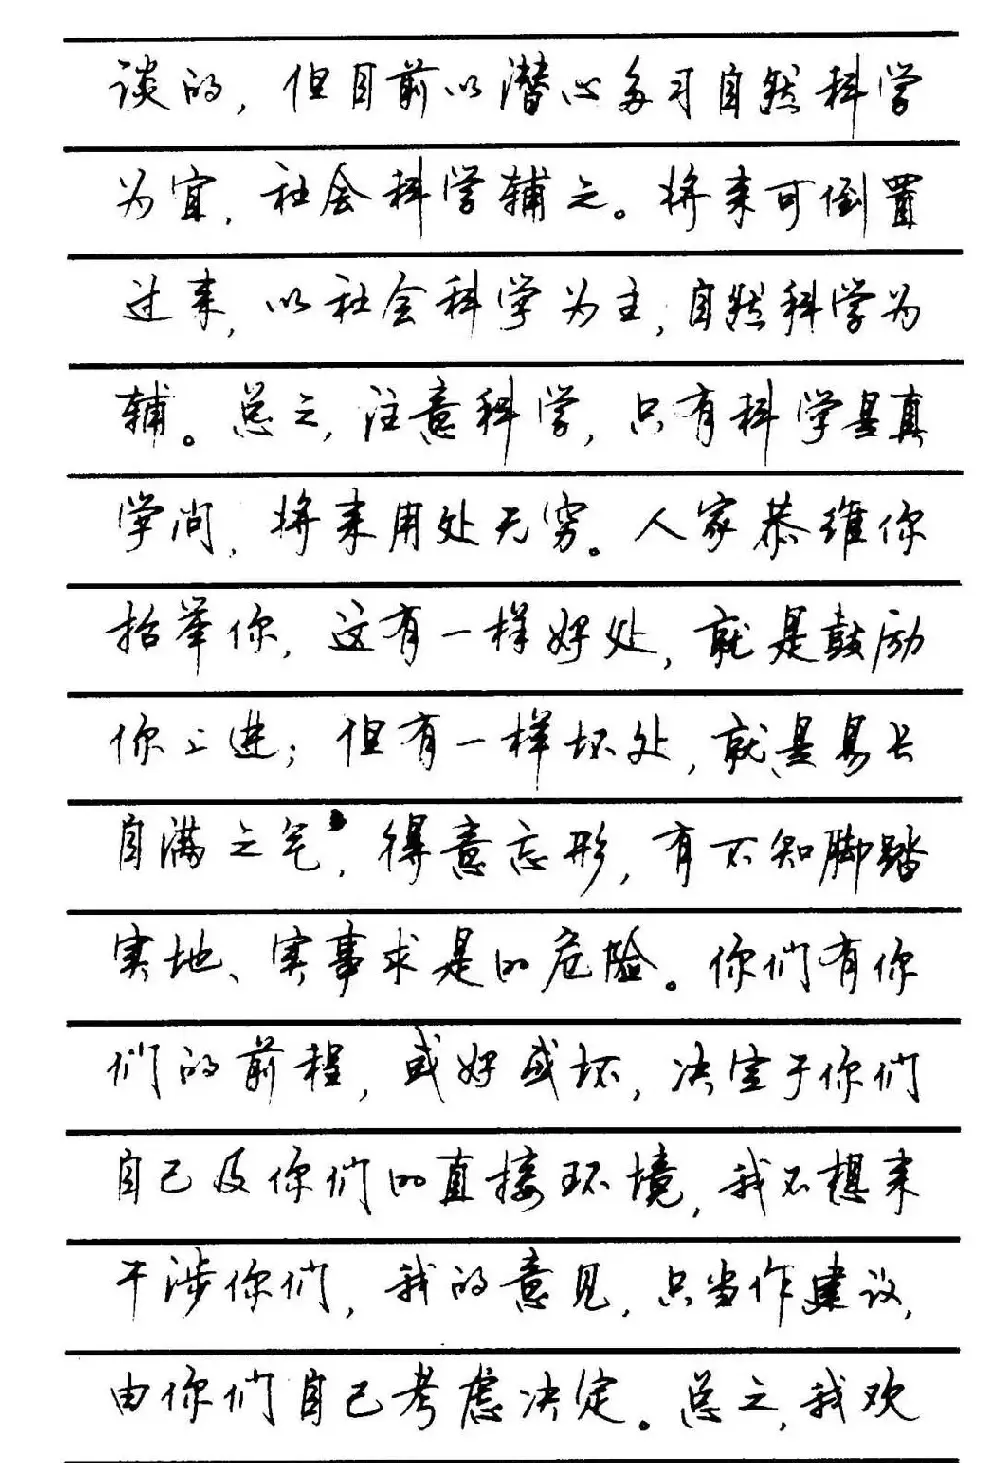 谈的，但目前以潜心多习自然科学
为宜，社会科学辅之。将来可倒置
过来，以社会科学为主，自然科学为
辅。总之，注意科学，只有科学是真
学问，将来用处无穷。人家恭维你
抬举你，这有一样好处，就是鼓励
你上进；但有一样坏处，就是易长
自满之气，得意忘形，有不知脚踏
实地、实事求是的危险。你们有你
们的前程，或好或坏，决定于你们
自己及你们的直接环境，我不想来
干涉你们，我的意见，只当作建议，
由你们自己考虑决定。总之，我欢